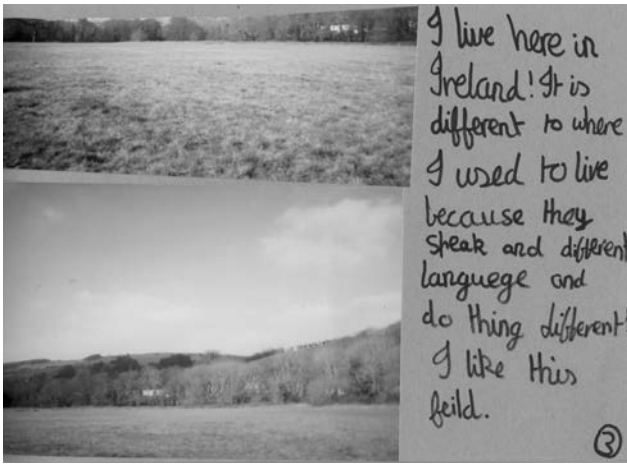 I live here in
Ireland! It is
different to where
I used to live
because they
speak and different
languege and
do thing different
I like this
feild.
3